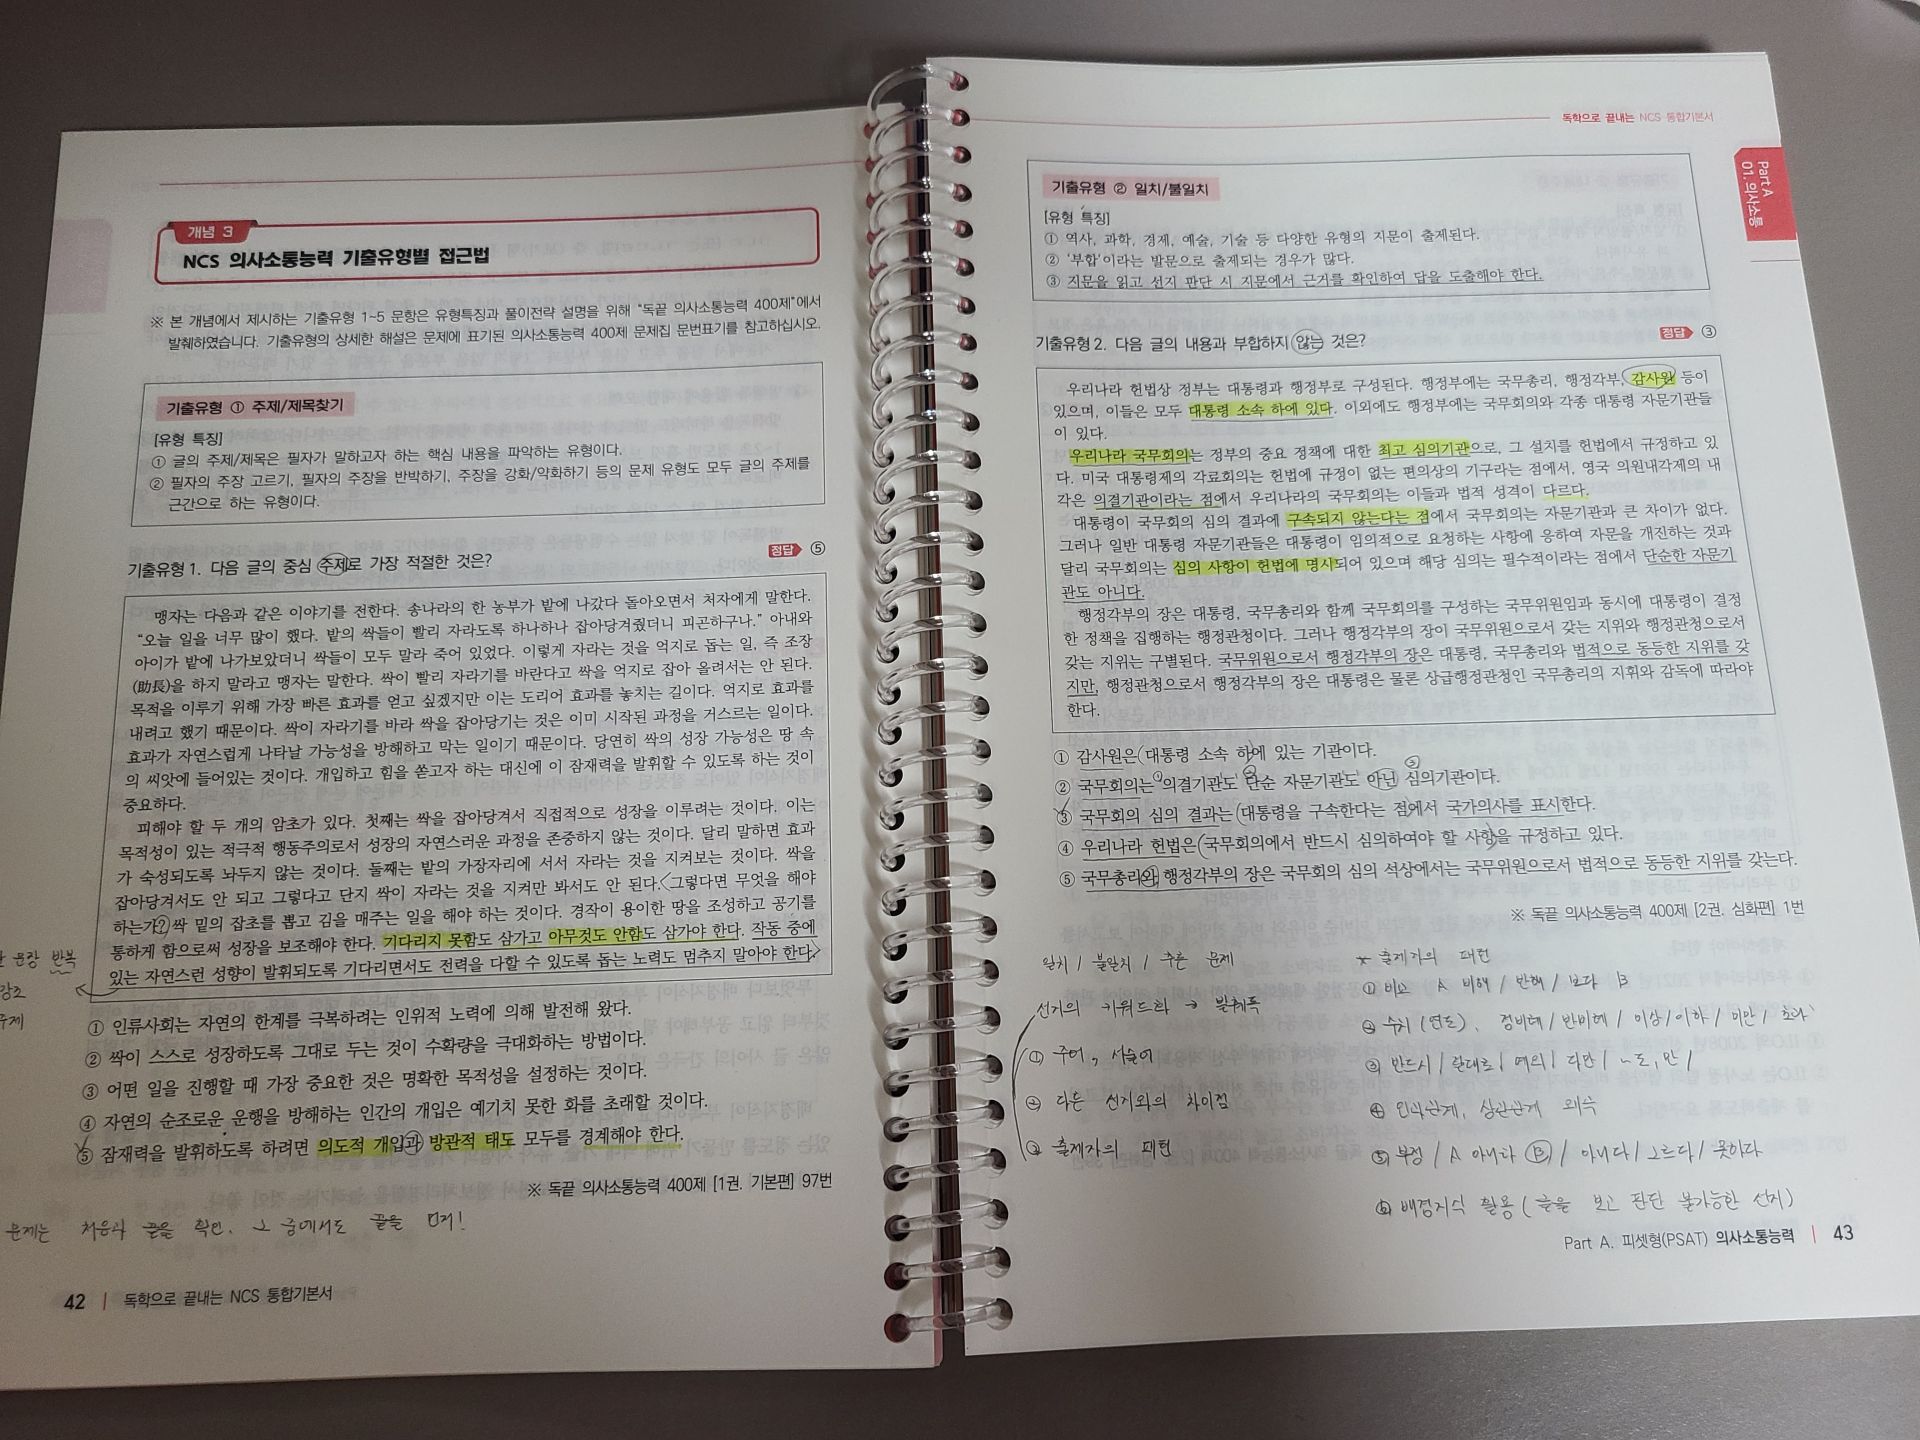 개념 3
NCS 의사소통능력 기출유형별 접근법
※ 본 개념에서 제시하는 기출유형 1~5 문항은 유형특징과 풀이전략 설명을 위해 "독끝 의사소통능력 400제"에서
발췌하였습니다. 기출유형의 상세한 해설은 문제에 표기된 의사소통능력 400제 문제집 문번표기를 참고하십시오.
기출유형 ① 주제/제목찾기
[유형 특징]
① 글의 주제/제목은 필자가 말하고자 하는 핵심 내용을 파악하는 유형이다.
② 필자의 주장 고르기, 필자의 주장을 반박하기, 주장을 강화/약화하기 등의 문제 유형도 모두 글의 주제를
근간으로 하는 유형이다.
기출유형 1. 다음 글의 중심 주제로 가장 적절한 것은?
정답 ⑤
맹자는 다음과 같은 이야기를 전한다. 송나라의 한 농부가 밭에 나갔다 돌아오면서 처자에게 말한다.
"오늘 일을 너무 많이 했다. 밭의 싹들이 빨리 자라도록 하나하나 잡아당겨줬더니 피곤하구나." 아내와
아이가 밭에 나가보았더니 싹들이 모두 말라 죽어 있었다. 이렇게 자라는 것을 억지로 돕는 일, 즉 조장
(助長)을 하지 말라고 맹자는 말한다. 싹이 빨리 자라기를 바란다고 싹을 억지로 잡아 올려서는 안 된다.
목적을 이루기 위해 가장 빠른 효과를 얻고 싶겠지만 이는 도리어 효과를 놓치는 길이다. 억지로 효과를
내려고 했기 때문이다. 싹이 자라기를 바라 싹을 잡아당기는 것은 이미 시작된 과정을 거스르는 일이다.
효과가 자연스럽게 나타날 가능성을 방해하고 막는 일이기 때문이다. 당연히 싹의 성장 가능성은 땅 속
의 씨앗에 들어있는 것이다. 개입하고 힘을 쏟고자 하는 대신에 이 잠재력을 발휘할 수 있도록 하는 것이
중요하다.
피해야 할 두 개의 암초가 있다. 첫째는 싹을 잡아당겨서 직접적으로 성장을 이루려는 것이다. 이는
목적성이 있는 적극적 행동주의로서 성장의 자연스러운 과정을 존중하지 않는 것이다. 달리 말하면 효과
가 숙성되도록 놔두지 않는 것이다. 둘째는 밭의 가장자리에 서서 자라는 것을 지켜보는 것이다. 싹을
잡아당겨서도 안 되고 그렇다고 단지 싹이 자라는 것을 지켜만 봐서도 안 된다. 그렇다면 무엇을 해야
하는가? 싹 밑의 잡초를 뽑고 김을 매주는 일을 해야 하는 것이다. 경작이 용이한 땅을 조성하고 공기를
통하게 함으로써 성장을 보조해야 한다. 기다리지 못함도 삼가고 아무것도 안함도 삼가야 한다. 작동 중에
있는 자연스런 성향이 발휘되도록 기다리면서도 전력을 다할 수 있도록 돕는 노력도 멈추지 말아야 한다.
문장 반복
강조
① 인류사회는 자연의 한계를 극복하려는 인위적 노력에 의해 발전해 왔다.
② 싹이 스스로 성장하도록 그대로 두는 것이 수확량을 극대화하는 방법이다.
③ 어떤 일을 진행할 때 가장 중요한 것은 명확한 목적성을 설정하는 것이다.
④ 자연의 순조로운 운행을 방해하는 인간의 개입은 예기치 못한 화를 초래할 것이다.
⑤ 잠재력을 발휘하도록 하려면 의도적 개입과 방관적 태도 모두를 경계해야 한다.
※ 독끝 의사소통능력 400제 [1권. 기본편] 97번
문제는 처음과 끝을 확인. 그 중에서도 끝을 먼저!
42 | 독학으로 끝내는 NCS 통합기본서
독학으로 끝내는 NCS 통합기본서
Part A
01. 의사소통
기출유형 ② 일치/불일치
[유형 특징]
① 역사, 과학, 경제, 예술, 기술 등 다양한 유형의 지문이 출제된다.
② '부합'이라는 발문으로 출제되는 경우가 많다.
③ 지문을 읽고 선지 판단 시 지문에서 근거를 확인하여 답을 도출해야 한다.
기출유형 2. 다음 글의 내용과 부합하지 않는 것은?
정답 ③
우리나라 헌법상 정부는 대통령과 행정부로 구성된다. 행정부에는 국무총리, 행정각부, 감사원 등이
있으며, 이들은 모두 대통령 소속 하에 있다. 이외에도 행정부에는 국무회의와 각종 대통령 자문기관들
이 있다.
우리나라 국무회의는 정부의 중요 정책에 대한 최고 심의기관으로, 그 설치를 헌법에서 규정하고 있
다. 미국 대통령제의 각료회의는 헌법에 규정이 없는 편의상의 기구라는 점에서, 영국 의원내각제의 내
각은 의결기관이라는 점에서 우리나라의 국무회의는 이들과 법적 성격이 다르다.
대통령이 국무회의 심의 결과에 구속되지 않는다는 점에서 국무회의는 자문기관과 큰 차이가 없다.
그러나 일반 대통령 자문기관들은 대통령이 임의적으로 요청하는 사항에 응하여 자문을 개진하는 것과
달리 국무회의는 심의 사항이 헌법에 명시되어 있으며 해당 심의는 필수적이라는 점에서 단순한 자문기
관도 아니다.
행정각부의 장은 대통령, 국무총리와 함께 국무회의를 구성하는 국무위원임과 동시에 대통령이 결정
한 정책을 집행하는 행정관청이다. 그러나 행정각부의 장이 국무위원으로서 갖는 지위와 행정관청으로서
갖는 지위는 구별된다. 국무위원으로서 행정각부의 장은 대통령, 국무총리와 법적으로 동등한 지위를 갖
지만, 행정관청으로서 행정각부의 장은 대통령은 물론 상급행정관청인 국무총리의 지휘와 감독에 따라야
한다.
① 감사원은 대통령 소속 하에 있는 기관이다.
② 국무회의는 의결기관도 단순 자문기관도 아닌 심의기관이다.
③ 국무회의 심의 결과는 대통령을 구속한다는 점에서 국가의사를 표시한다.
④ 우리나라 헌법은 국무회의에서 반드시 심의하여야 할 사항을 규정하고 있다.
⑤ 국무총리와 행정각부의 장은 국무회의 심의 석상에서는 국무위원으로서 법적으로 동등한 지위를 갖는다.
※ 독끝 의사소통능력 400제 [2권. 심화편] 1번
일치 / 불일치 / 추론 문제
선지의 키워드화 → 발췌독
① 주어, 서술어
② 다른 선지와의 차이점
③ 출제자의 패턴
* 출제자의 패턴
① 비교 A 비해 / 반해 / 보다 B
② 수치 (연도), 정비례 / 반비례 / 이상 / 이하 / 미만 / 초과
③ 반드시 / 절대로 / 예외 / 다만 / ~도, 만 /
④ 인과관계, 상관관계 의식
⑤ 부정 / A 아니라 B / 아니다 / 그르다 / 못하다
⑥ 배경지식 활용 (글을 보고 판단 불가능한 선지)
Part A. 피셋형(PSAT) 의사소통능력 | 43